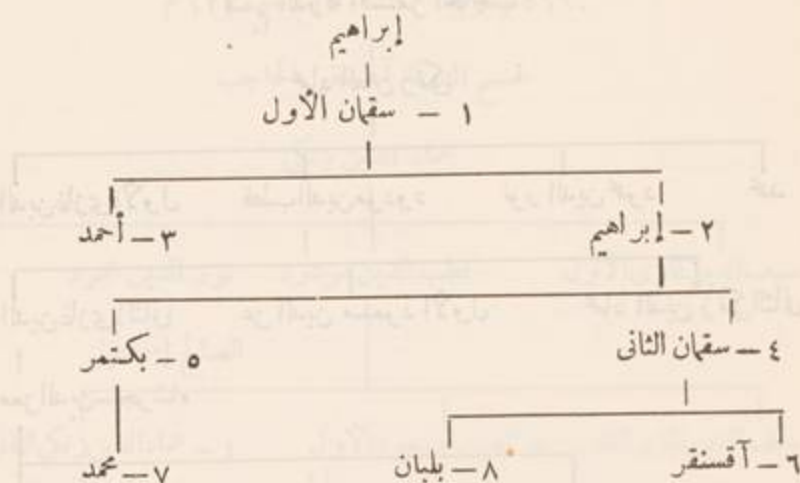 إبراهيم
١ - سقمان الأول
٢ - إبراهيم
٣ - أحمد
٤ - سقمان الثانى
٥ - بكتمر
٦ - آقسنقر
٨ - بلبان
٧ - محمد